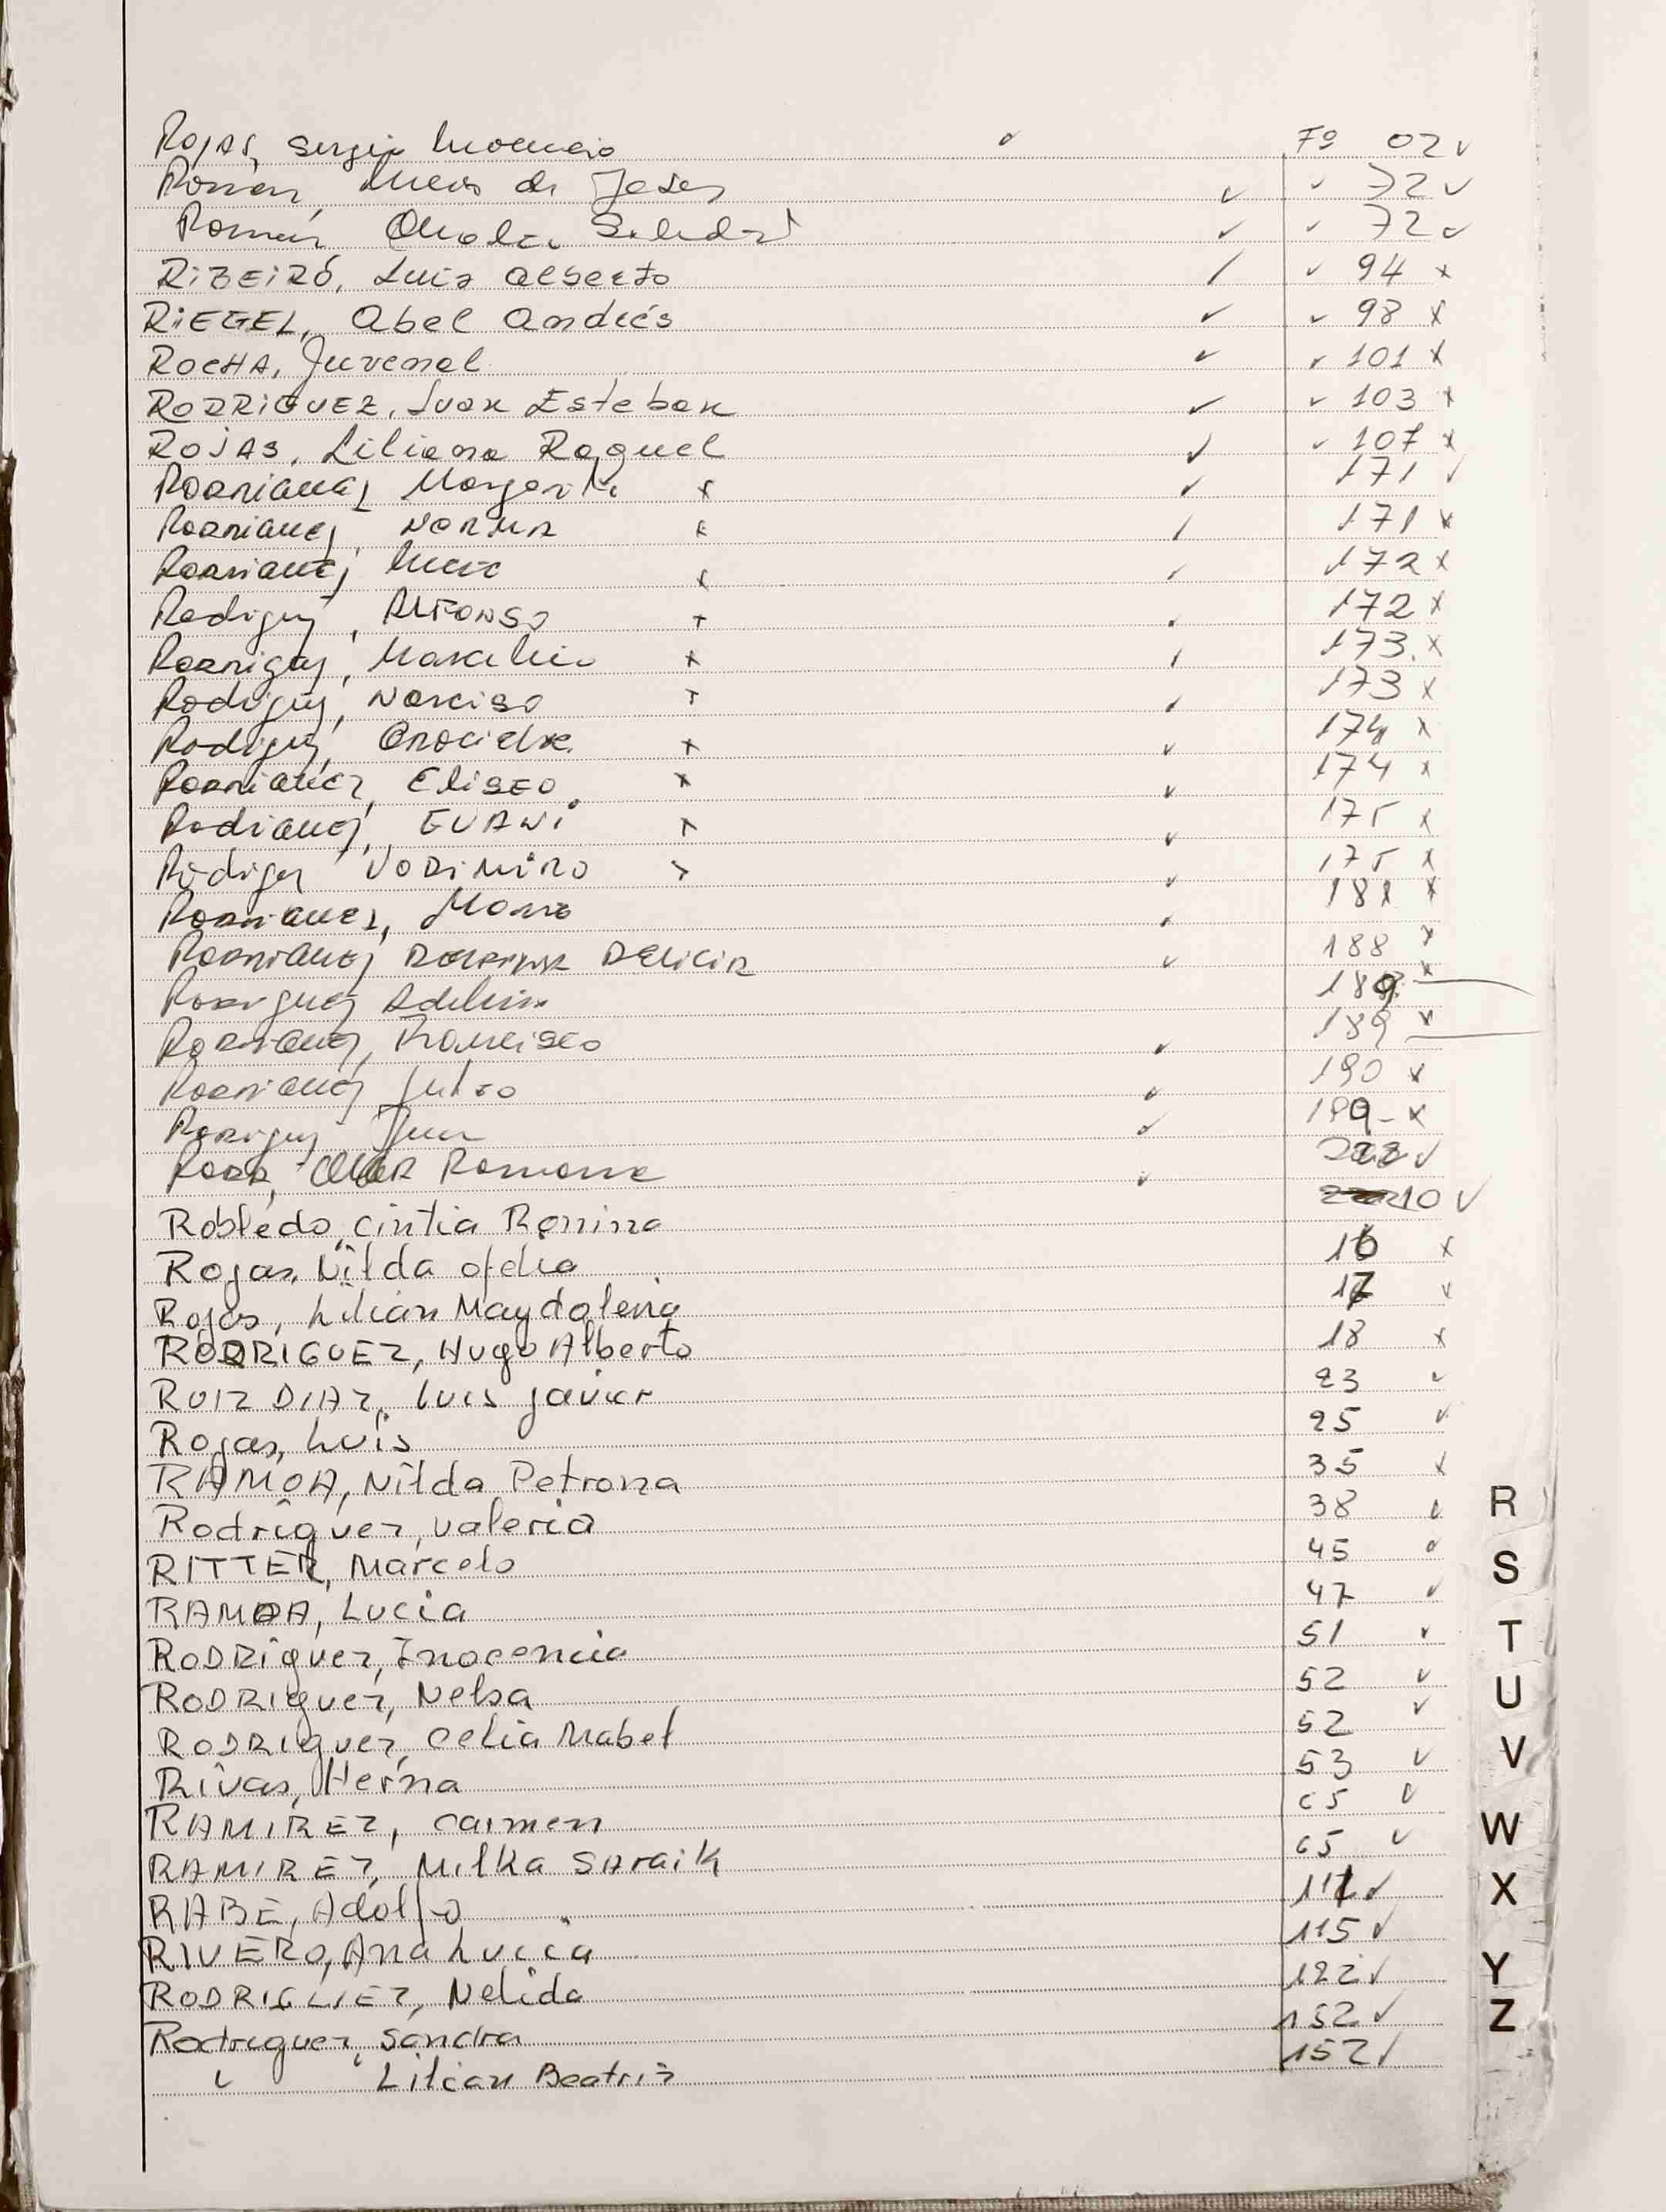 Rojas, Sergio Inocencio Fº 02 ✓
Román, de Jesus ✓ ✓ 72 ✓
Román, ✓ ✓ 72 ✓
RIBEIRÓ, Luis Alberto / ✓ 94 x
RiEGEL, Abel Andrés ✓ ✓ 98 x
ROCHA, Juvenal ✓ ✓ 101 x
RODRIGUEZ, Juan Esteban ✓ ✓ 103 x
ROJAS, Liliana Raquel ✓ ✓ 107 x
Rodriguez, Margarita x ✓ 171 ✓
Rodriguez, NORMA x / 171 x
Rodriguez, x ✓ 172 x
Rodriguez, Alfonso x ✓ 172 x
Rodriguez, Marcelino x / 173 x
Rodriguez, Narciso x ✓ 173 x
Rodriguez, x ✓ 174 x
Rodriguez, EliSEO x ✓ 174 x
Rodriguez, x ✓ 175 x
Rodriguez x ✓ 175 x
Rodriguez, ✓ 181 x
Rodriguez ✓ 188 x
Rodriguez 189 x
Rodriguez, Francisco ✓ 189 x
Rodriguez Julio ✓ 190 x
Rodriguez Juan ✓ x
Ramona ✓ ✓
Robledo, Cintia Romina 10 ✓
Rojas, Nilda ofelia 16 x
Rojas, Lilian Magdalena 17 ✓
RODRIGUEZ, Hugo Alberto 18 x
RUIZ DIAZ, Luis Javier 23 ✓
Rojas, Luis 25 ✓
RAMOA, Nilda Petrona 35 x
Rodriguez, Valeria 38 ✓
RITTER, Marcelo 45 ✓
RAMOA, Lucia 47 ✓
RODRiguez, Inocencia 51 ✓
RODRIguez, Nelsa 52 ✓
RODRIguez, Celia Mabel 52 ✓
Rivas, Herna 53 ✓
RAMIREZ, Carmen 65 ✓
RAMIREZ, Milka Saraik 65 ✓
RABE, Adolfo ✓
RIVERO, Ana Lucia 115 ✓
RODRIGUEZ, Nelida 122 ✓
Rodriguez, Sandra 152 ✓
" Lilian Beatriz 152 ✓
R
S
T
U
V
W
X
Y
Z